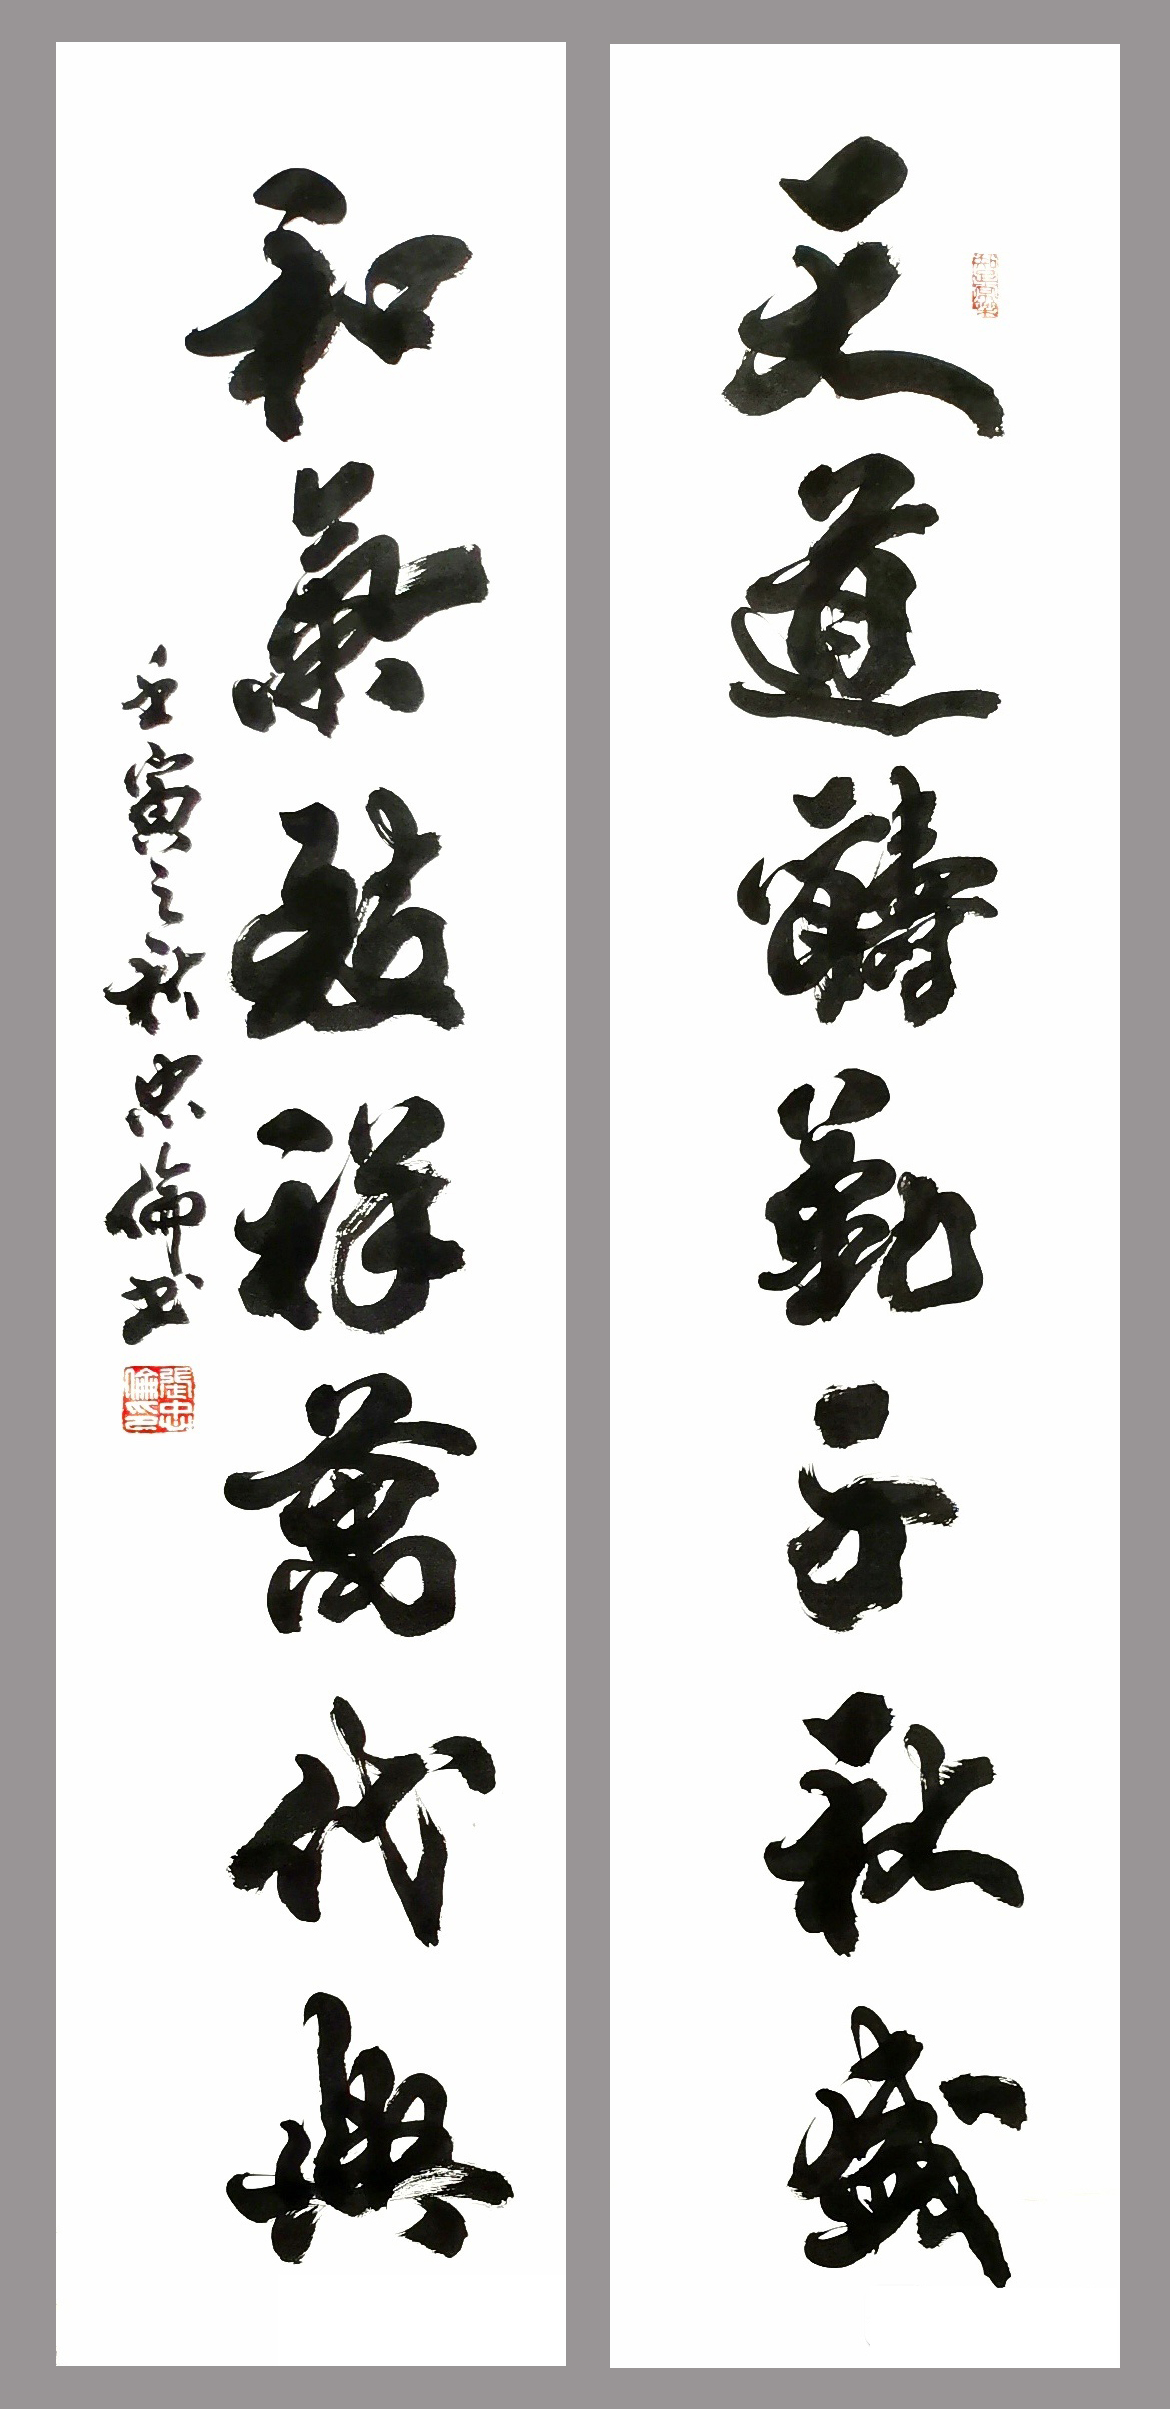 天道酬勤千秋盛
和氣致祥萬代興
壬寅之秋忠倫書
張忠倫印